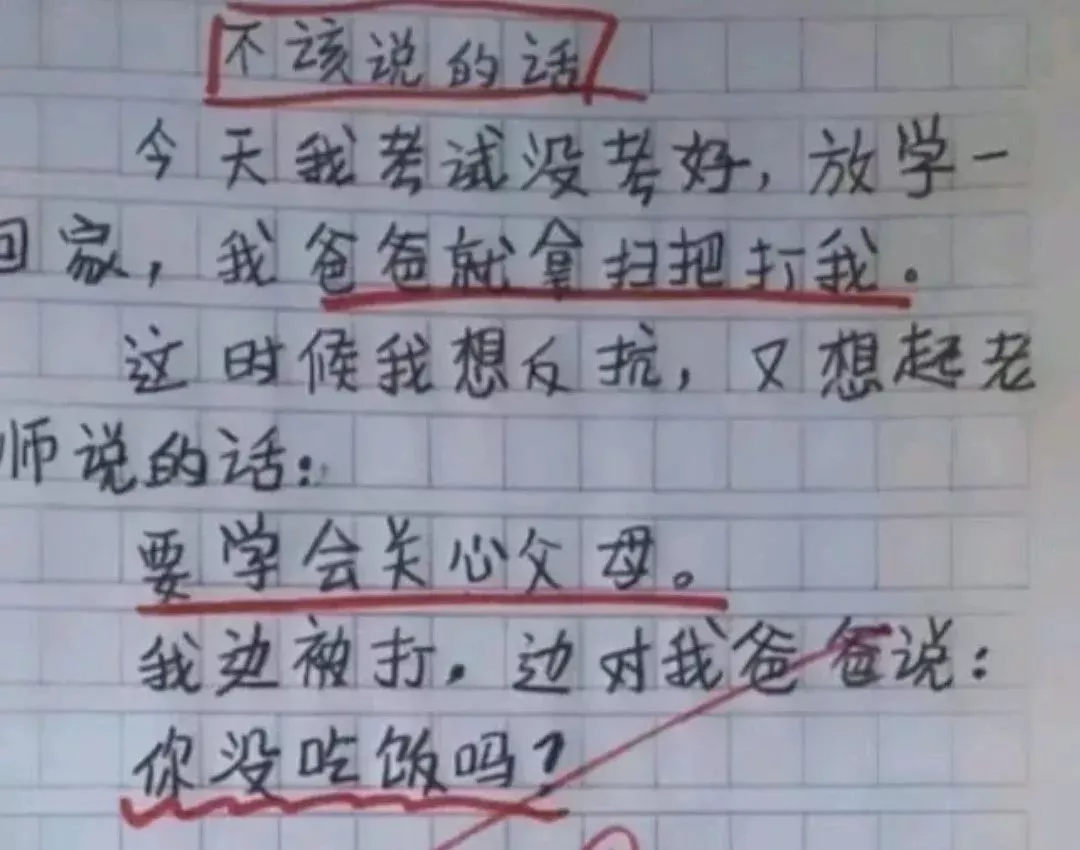 不该说的话
今天我考试没考好,放学一
回家,我爸爸就拿扫把打我。
这时候我想反抗,又想起老
师说的话:
要学会关心父母。
我边被打,边对我爸爸说:
你没吃饭吗?